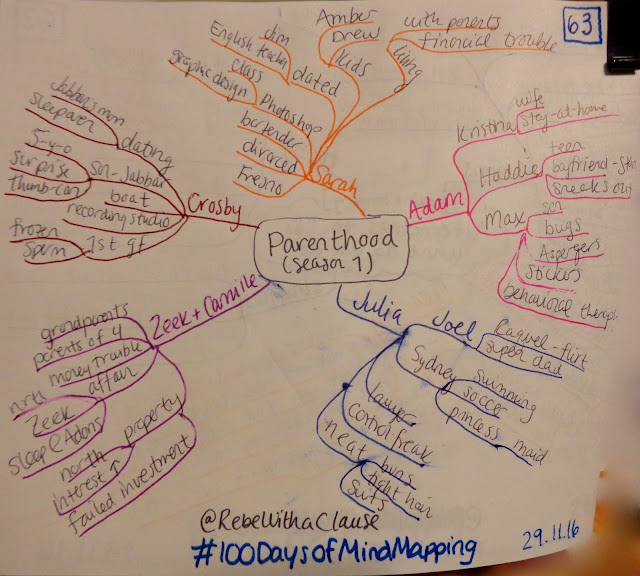 63
Parenthood
(season 1)
Sarah
Amber
Drew
kids
living
with parents
financial trouble
dated
him
English teacher
Photoshop
class
graphic design
bartender
divorced
Fresno
Adam
Kristina
wife
stay-at-home
Haddie
teen
sneaks out
Max
son
bugs
Aspergers
stickers
behavioral therap
Julia
Joel
Raquel-flirt
super dad
Sydney
swimming
soccer
princess maid
lawyer
control freak
neat
buns
tight hair
suits
Zeek+Camille
grandparents
parents of 4
money trouble
affair
Zeek
sleep@Adams
property
north
interest ↑
failed investment
Crosby
dating
sleepover
son-Jabbar
5-y-o
surprise
boat
recording studio
1st gf
frozen
sperm
@RebelWithaClause
#100DaysofMindMapping
29.11.16